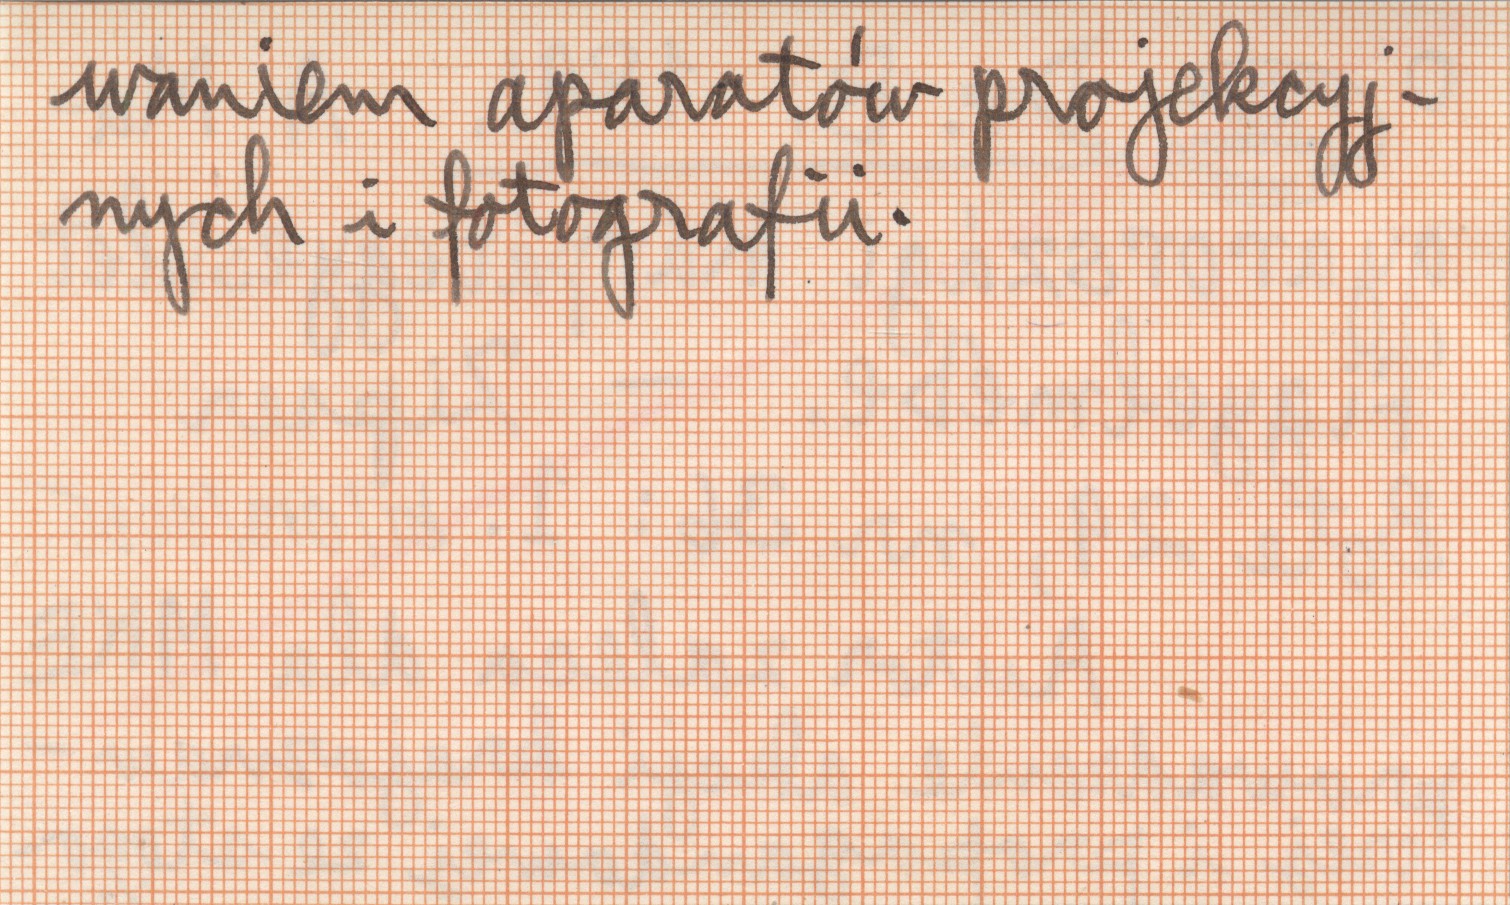 waniem aparatów projekcyj-
nych i fotografii.